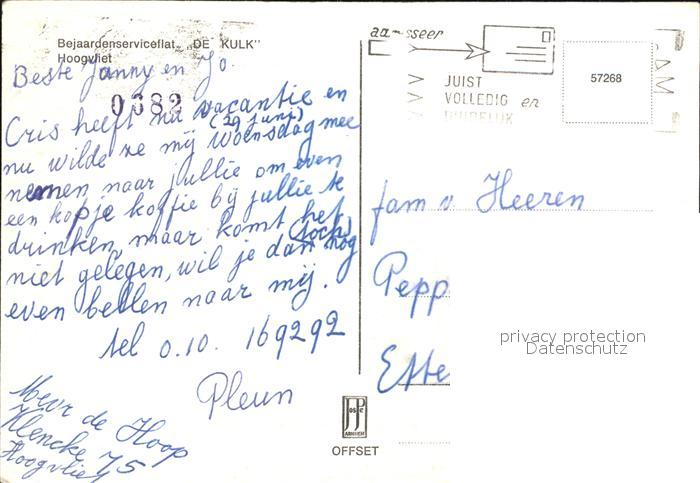 Bejaardenserviceflat „DE KULK"
Hoogvliet
Beste Janny en Jo.
0382
Cris heeft nu vacantie en
(29 juni)
nu wilde ze mij Woensdag mee
nemen naar jullie om even
een kopje koffie bij jullie te
drinken, maar komt het
(toch)
niet gelegen, wil je dan nog
even bellen naar mij.
tel 0.10. 169292
Pleun
Mevr de Hoop
Klencke 75
Hoogvliet
JUIST
VOLLEDIG en
DUIDELIJK
57268
fam v Heeren
Pepp
Ette
privacy protection
Datenschutz
JosPe
ARNHEM
OFFSET